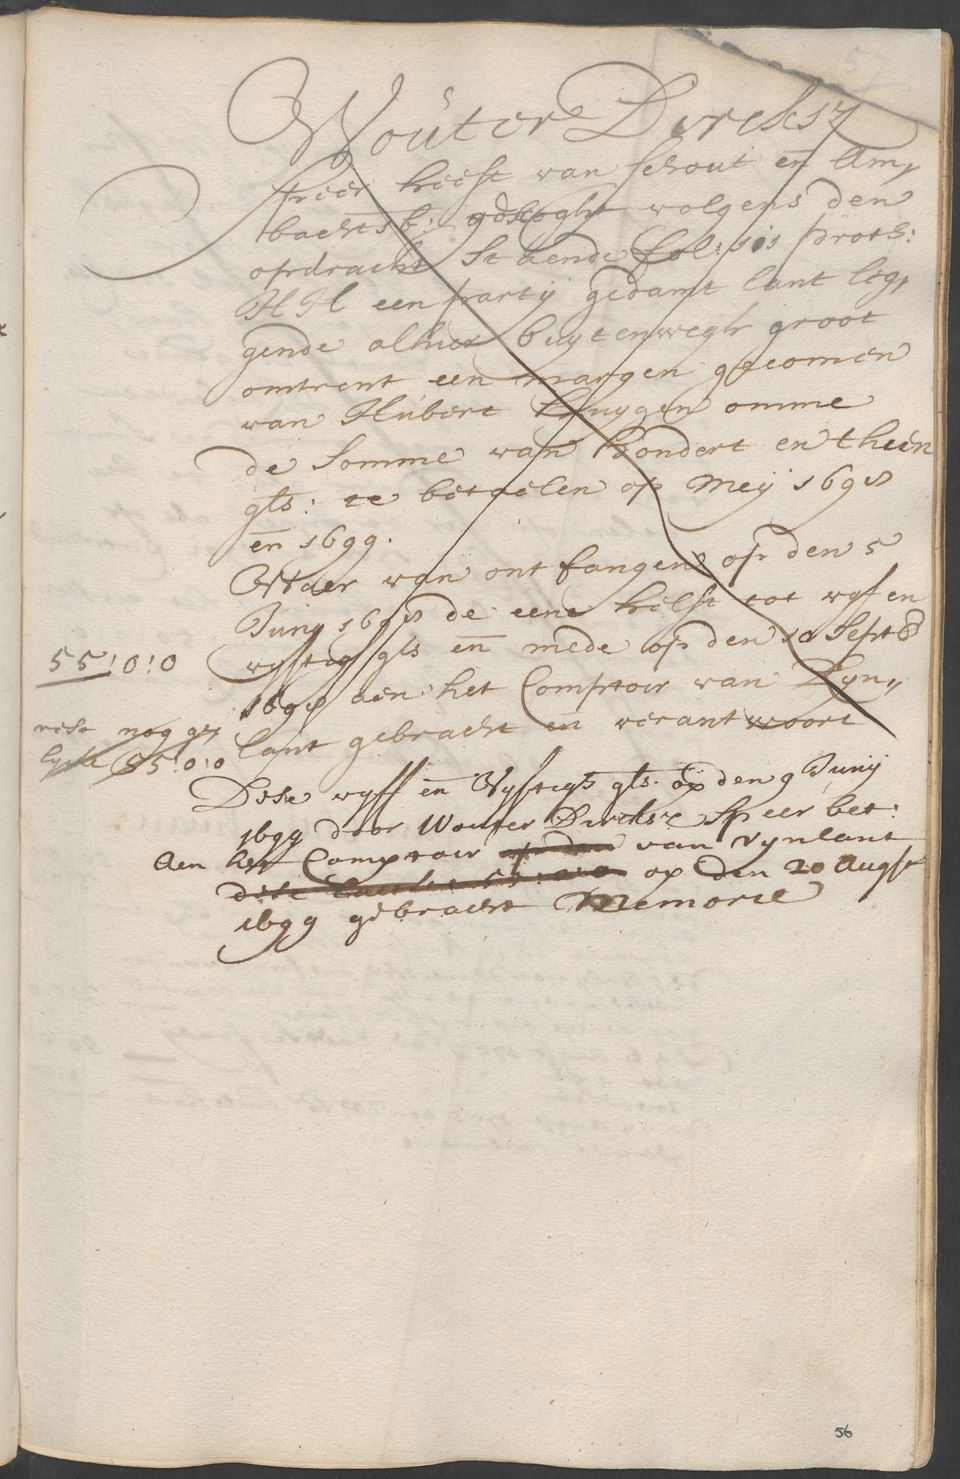 57
Wouter Dircksz
speer heeft van schout en Am,
bachtsb: gekoght volgens den
opdracht staende fol: 101 proth:
HH een partij gedamt lant leg,
gende alhier buytenwegh groot
omtrent een margen gecomen
van Hubert Huygen omme
de somme van hondert en thien
gls: te betaelen op Meij 1698
en 1699.
Waer van ontfangen op den 5
Junij 1698 de eene helft tot vyf en
vyftigh gls en mede op den 10 Septb
55:0:0
1698 aen het Comptoir van Ryn,
lant gebracht en verantwoort
rest nog ge,
lyck 55:0:0
Dese vyff en Vyftigh gls. op den 9 Junij
1699 door Wouter Dircksz Speer bet:
Aen het Comptoir op den van rynlant
dese 55:0:0 op den 20 Augst
1699 gebracht Memorie
56